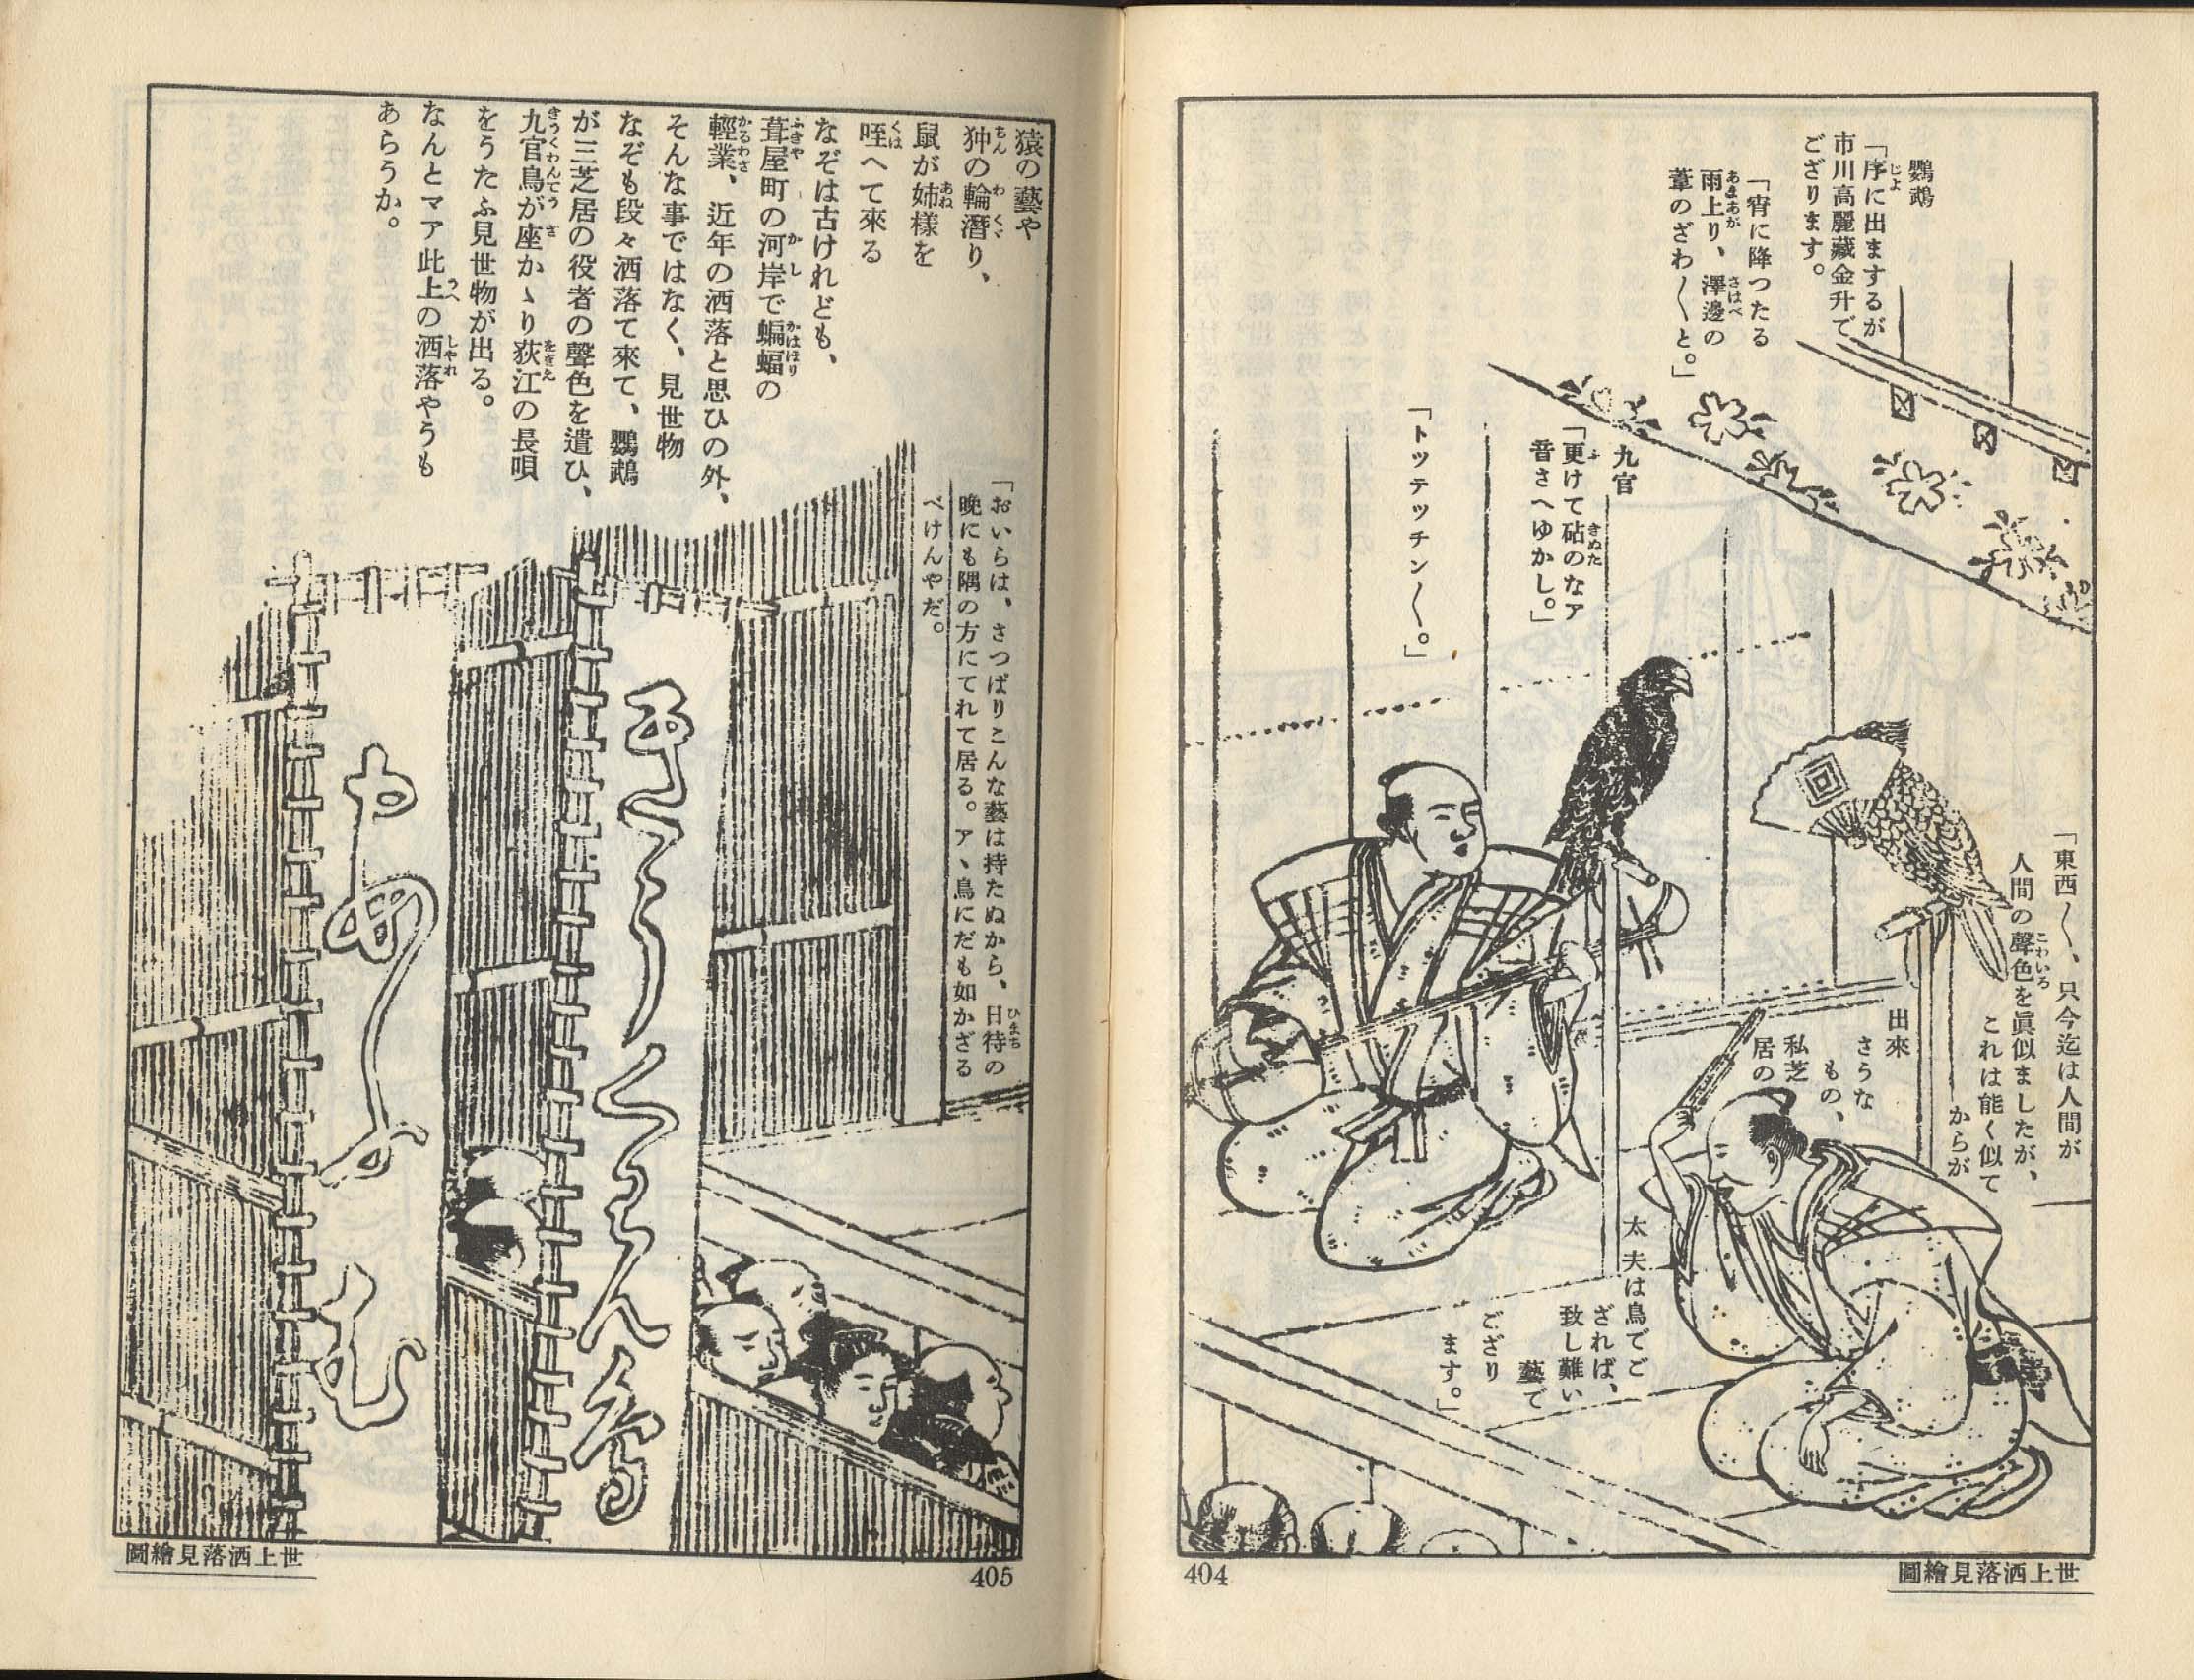 鸚鵡
「序に出まするが
市川高麗藏金升で
ござります。
「宵に降つたる
雨上り、澤邊の
葦のざわ〱と。」
九官
「更けて砧のなア
音さへゆかし。」
「トッテッチン〱。」
「東西〱、只今迄は人間が
人間の聲色を眞似ましたが、
これは能く似て
からが
出來
さうな
もの、
私芝
居の
太夫は鳥でご
ざれば、
致し難い
藝で
ござり
ます。」
404
世上洒落見繪圖
猿の藝や
狆の輪潛り、
鼠が姉樣を
咥へて來る
なぞは古けれども、
葺屋町の河岸で蝙蝠の
輕業、近年の洒落と思ひの外、
そんな事ではなく、見世物
なぞも段々洒落て來て、鸚鵡
が三芝居の役者の聲色を遣ひ、
九官鳥が座かゝり荻江の長唄
をうたふ見世物が出る。
なんとマア此上の洒落やうも
あらうか。
「おいらは、さつぱりこんな藝は持たぬから、日待の
晩にも隅の方にてれて居る。アヽ鳥にだも如かざる
べけんやだ。
きうくわん鳥
あふむ
405
世上洒落見繪圖